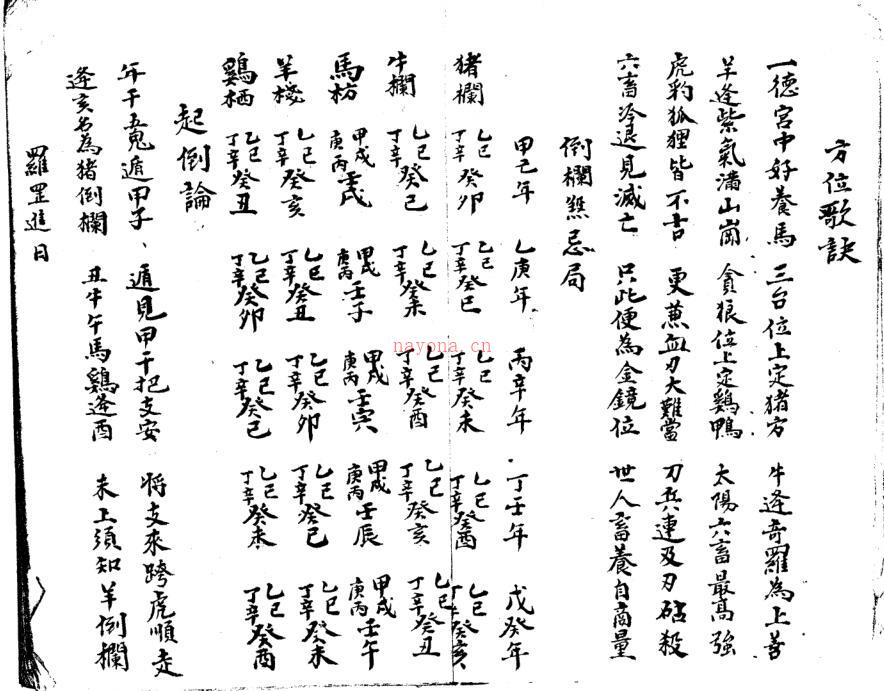 方位歌訣
一德宮中好養馬 三台位上定猪方 牛逢奇羅為上善
羊逢紫氣滿山崗 貪狼位上定鷄鴨 太陽六畜最高強
虎豹狐狸皆不吉 更蕙血刃大難當 刀兵連及刃砧殺
六畜冷退見滅亡 只此便為金鏡位 世人畜養自商量
倒欄煞忌局
甲己年 乙庚年 丙辛年 丁壬年 戊癸年
猪欄 乙己丁辛癸卯 乙己丁辛癸巳 乙己丁辛癸未 乙己丁辛癸酉 乙己丁辛癸亥
牛欄 乙己丁辛癸巳 乙己丁辛癸未 乙己丁辛癸酉 乙己丁辛癸亥 乙己丁辛癸丑
馬枋 甲戊庚丙壬戌 甲戊庚丙壬子 甲戊庚丙壬寅 甲戊庚丙壬辰 甲戊庚丙壬午
羊棧 乙己丁辛癸亥 乙己丁辛癸丑 乙己丁辛癸卯 乙己丁辛癸巳 乙己丁辛癸未
鷄栖 乙己丁辛癸丑 乙己丁辛癸卯 乙己丁辛癸巳 乙己丁辛癸未 乙己丁辛癸酉
起倒論
年干五鬼遁甲子、遁見甲干把支安 將支來跨虎順走
逢亥名為猪倒欄 丑牛午馬鷄逢酉 未上須知羊倒欄
羅罡進日
nayona.cn